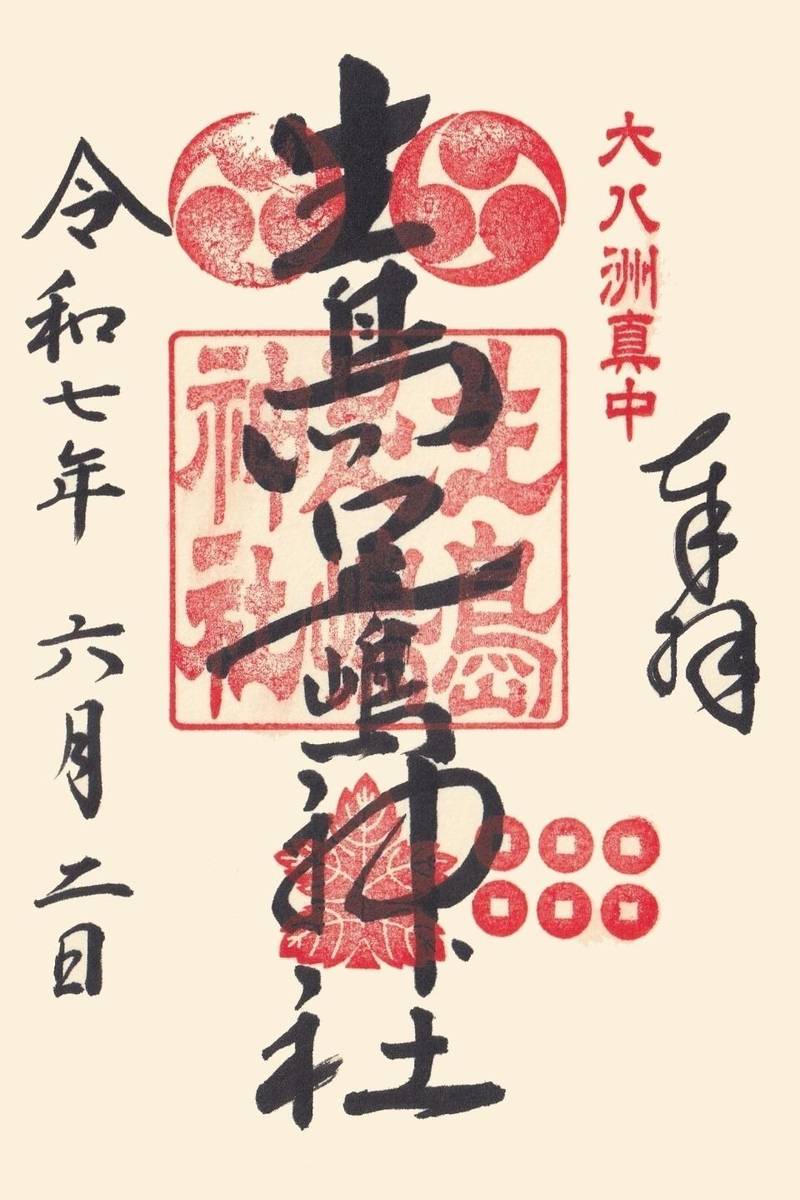 大八洲真中
奉拝
生島足嶋神社
生島
足嶋
神社
令和七年 六月二日